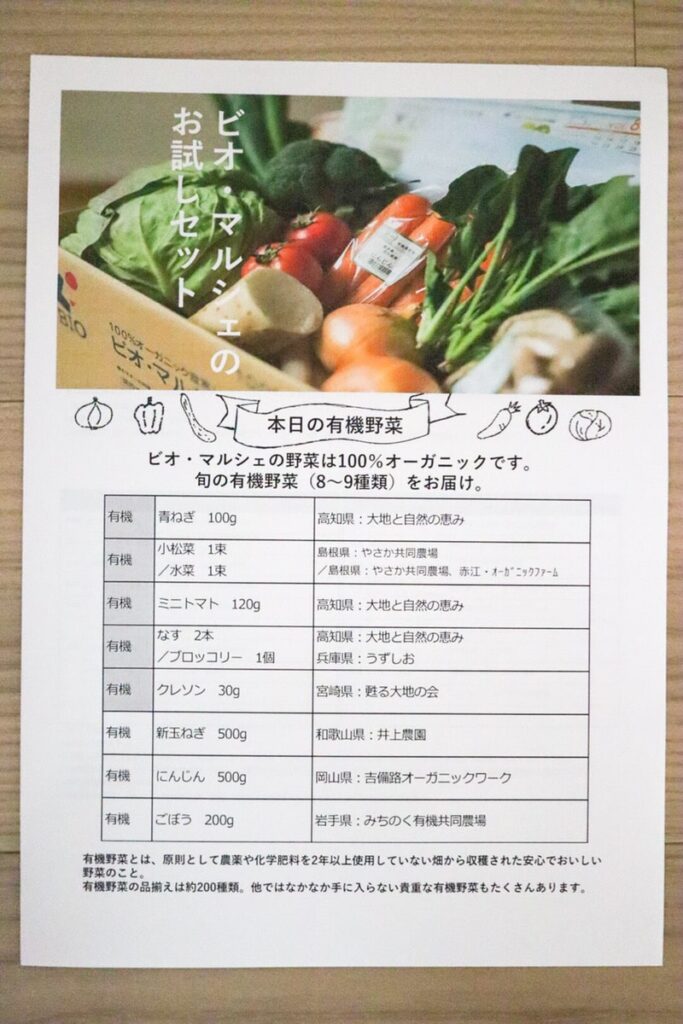 ビオ・マルシェの
お試しセット
BIO
100%オーガニック農業
ビオ・マル
にんじん
本日の有機野菜
ビオ・マルシェの野菜は100%オーガニックです。
旬の有機野菜（8～9種類）をお届け。
有機 青ねぎ 100g 高知県：大地と自然の恵み
有機 小松菜 1束 島根県：やさか共同農場
／水菜 1束 ／島根県：やさか共同農場、赤江・ｵｰｶﾞﾆｯｸﾌｧｰﾑ
有機 ミニトマト 120g 高知県：大地と自然の恵み
有機 なす 2本 高知県：大地と自然の恵み
／ブロッコリー 1個 兵庫県：うずしお
有機 クレソン 30g 宮崎県：甦る大地の会
有機 新玉ねぎ 500g 和歌山県：井上農園
有機 にんじん 500g 岡山県：吉備路オーガニックワーク
有機 ごぼう 200g 岩手県：みちのく有機共同農場
有機野菜とは、原則として農薬や化学肥料を2年以上使用していない畑から収穫された安心でおいしい
野菜のこと。
有機野菜の品揃えは約200種類。他ではなかなか手に入らない貴重な有機野菜もたくさんあります。